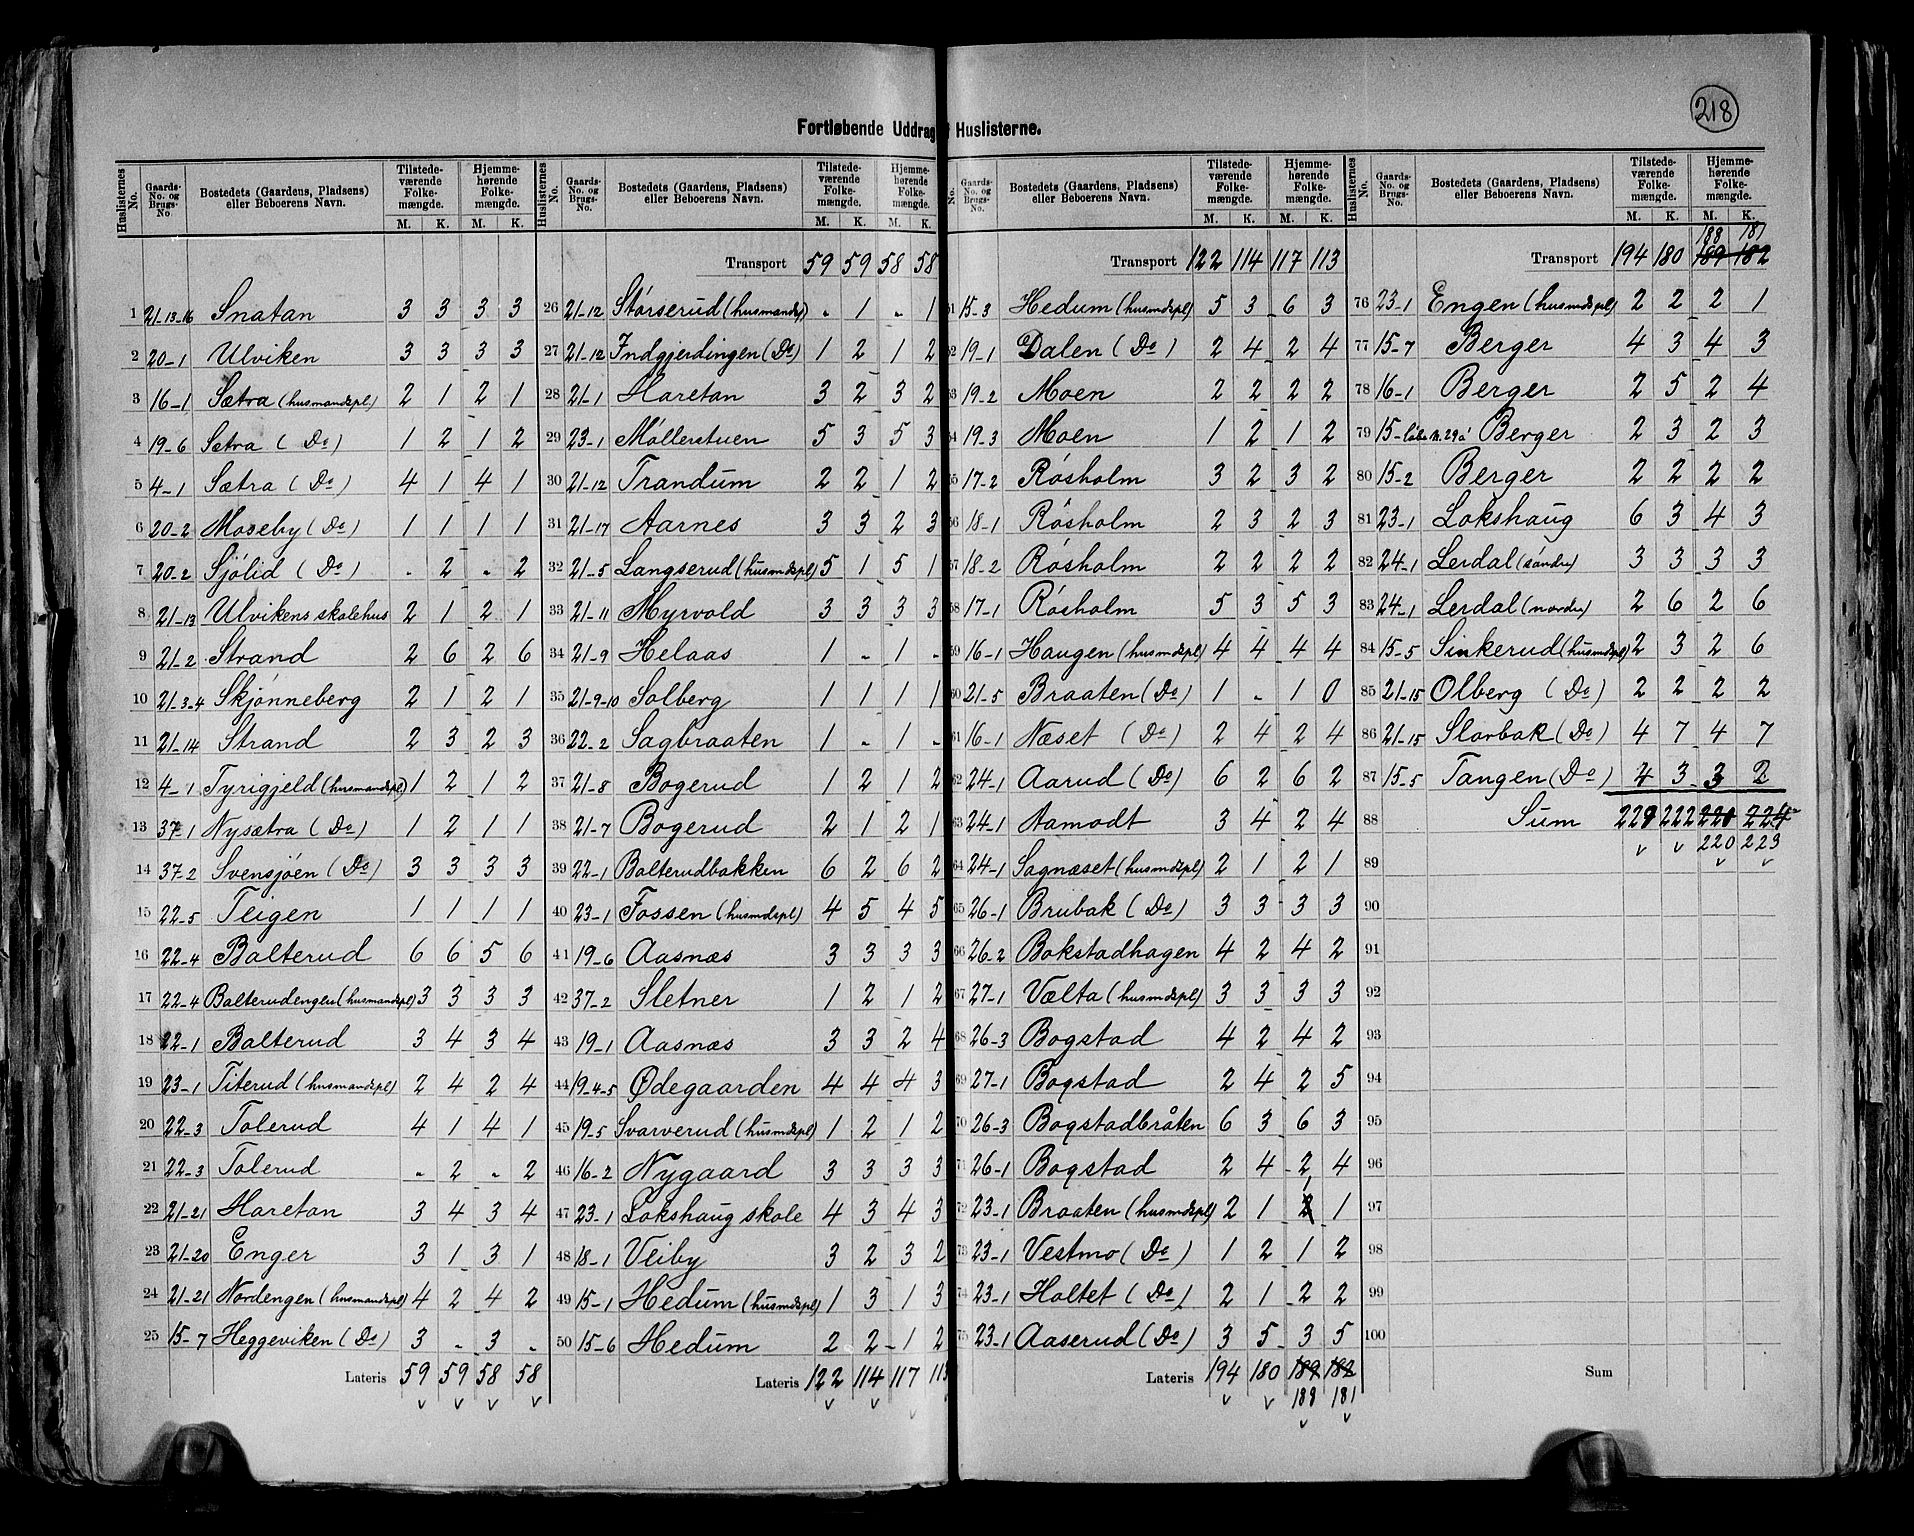 218
Fortløbende Uddrag Huslisterne.
Huslisternes No. Gaards-No. og Brugs-No. Bostedets (Gaardens, Pladsens) eller Beboerens Navn. Tilstede-værende Folke-mængde. M. K. Hjemme-hørende Folke-mængde. M. K.
1 21-13-16 Snatan 3 3 3 3
2 20-1 Ulviken 3 3 3 3
3 16-1 Sætra (husmandspl) 2 1 2 1
4 19-6 Sætra (Do) 1 2 1 2
5 4-1 Sætra (Do) 4 1 4 1
6 20-2 Moseby (Do) 1 1 1 1
7 20-2 Sjölid (Do) - 2 - 2
8 21-13 Ulvikens skolehus 2 1 2 1
9 21-2 Strand 2 6 2 6
10 21-3-4 Skjønneberg 2 1 2 1
11 21-14 Strand 2 3 2 3
12 4-1 Tyrigjeld (husmandspl) 1 2 1 2
13 37-1 Nysætra (Do) 1 2 1 1
14 37-2 Svensjöen (Do) 3 3 3 3
15 22-5 Teigen 1 1 1 1
16 22-4 Balterud 6 6 5 6
17 22-4 Balterudengen (husmandspl) 3 3 3 3
18 22-1 Balterud 3 4 3 4
19 23-1 Titerud (husmandspl) 2 4 2 4
20 22-3 Tolerud 4 1 4 1
21 22-3 Tolerud - 2 - 2
22 21-21 Haretan 3 4 3 4
23 21-20 Enger 3 1 3 1
24 21-21 Nordengen (husmandspl) 4 2 4 2
25 15-7 Heggeviken (Do) 3 - 3 -
Lateris 59 59 58 58
Huslisternes No. Gaards-No. og Brugs-No. Bostedets (Gaardens, Pladsens) eller Beboerens Navn. Tilstede-værende Folke-mængde. M. K. Hjemme-hørende Folke-mængde. M. K.
Transport 59 59 58 58
26 21-12 Störserud (husmandspl) - 1 - 1
27 21-12 Indgjerdingen (Do) 1 2 1 2
28 21-1 Haretan 3 2 3 2
29 23-1 Møllerstuen 5 3 5 3
30 21-12 Trandum 2 2 1 2
31 21-17 Aarnes 3 3 2 3
32 21-5 Langserud (husmdspl) 5 1 5 1
33 21-11 Myrvold 3 3 3 3
34 21-9 Helaas 1 - 1 -
35 21-9-10 Solberg 1 1 1 1
36 22-2 Sagbraaten 1 - 1 -
37 21-8 Bogerud 1 2 1 2
38 21-7 Bogerud 2 1 2 1
39 22-1 Balterudbakken 6 2 6 2
40 23-1 Fossen (husmdspl) 4 5 4 5
41 19-6 Aasnæs 3 3 3 3
42 37-2 Sletner 1 2 1 2
43 19-1 Aasnæs 3 3 2 4
44 19-4-5 Ødegaarden 4 4 4 3
45 19-5 Svarverud (husmdspl) 1 2 1 2
46 16-2 Nygaard 3 3 3 3
47 23-1 Lokshaug skole 4 3 4 3
48 18-1 Veiby 3 2 3 2
49 15-1 Hedum (husmdspl) 1 3 1 3
50 15-6 Hedum 2 2 1 2
Lateris 122 114 117 113
No. Gaards-No. og Brugs-No. Bostedets (Gaardens, Pladsens) eller Beboerens Navn. Tilstede-værende Folke-mængde. M. K. Hjemme-hørende Folke-mængde. M. K.
Transport 122 114 117 113
51 15-3 Hedum (husmdspl) 5 3 6 3
52 19-1 Dalen (Do) 2 4 2 4
53 19-2 Moen 2 2 2 2
54 19-3 Moen 1 2 1 2
55 17-2 Røsholm 3 2 3 2
56 18-1 Røsholm 2 3 2 3
57 18-2 Røsholm 2 2 2 2
58 17-1 Røsholm 5 3 5 3
59 16-1 Haugen (husmdspl) 4 4 4 4
60 21-5 Braaten (Do) 1 - 1 0
61 16-1 Næset (Do) 2 4 2 4
62 24-1 Aarud (Do) 6 2 6 2
63 24-1 Aamodt 3 4 2 4
64 24-1 Sagnæset (husmdspl) 2 1 2 1
65 26-1 Brubak (Do) 3 3 3 3
66 26-2 Bokstadhagen 4 2 4 2
67 27-1 Vælta (husmdspl) 3 3 3 3
68 26-3 Bogstad 4 2 4 2
69 27-1 Bogstad 2 4 2 5
70 26-3 Bogstadbråten 6 3 6 3
71 26-1 Bogstad 2 4 2 4
72 23-1 Braaten (husmdspl) 2 1 2 1 1
73 23-1 Vestmo (Do) 1 2 1 2
74 23-1 Holtet (Do) 2 1 2 2
75 23-1 Aaserud (Do) 3 5 3 5
Lateris 194 180 189 182
188 181
Huslisternes No. Gaards-No. og Brugs-No. Bostedets (Gaardens, Pladsens) eller Beboerens Navn. Tilstede-værende Folke-mængde. M. K. Hjemme-hørende Folke-mængde. M. K.
188 181
Transport 194 180 189 182
76 23-1 Engen (husmdspl) 2 2 2 1
77 15-7 Berger 4 3 4 3
78 16-1 Berger 2 5 2 4
79 15- Berger 2 3 2 3
80 15-2 Berger 2 2 2 2
81 23-1 Lokshaug 6 3 4 3
82 24-1 Lerdal (söndre) 3 3 3 3
83 24-1 Lerdal (nordre) 2 6 2 6
84 15-5 Sinkerud (husmdspl) 2 3 2 6
85 21-15 Olberg (Do) 2 2 2 2
86 21-15 Slorbak (Do) 4 7 4 7
87 15-5 Tangen (Do) 4 3 3 2
88 Sum 229 222 224
220 223
89
90
91
92
93
94
95
96
97
98
99
100
Sum